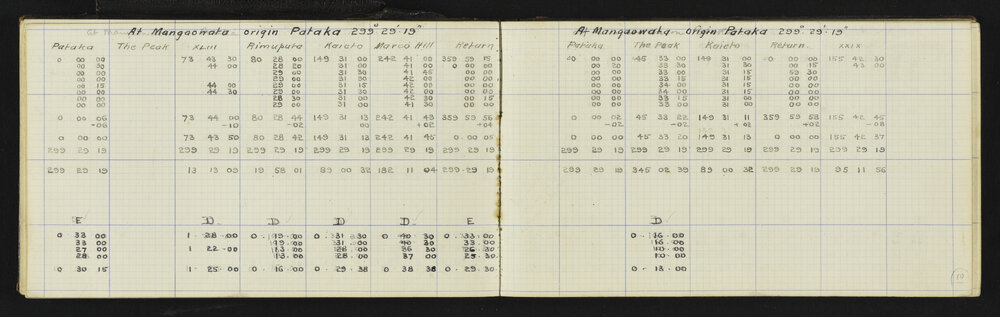 At Mangaowata origin Pataka 299° 29' 19"
Pataka The Peak XLIII Rimuputa Kaieto Marco Hill Return
0 00 00 73 43 30 80 28 00 149 31 00 242 41 00 359 59 15
00 30 44 00 28 20 31 00 41 00 0 00 00
00 00 29 00 31 30 41 45 00 00
00 00 29 00 31 30 42 00 00 00
00 15 44 00 29 00 31 15 42 00 00 00
00 00 44 30 29 00 31 15 42 30 00 00
00 00 28 30 31 00 42 00 00 15
00 00 29 00 31 00 41 30 00 00
0 00 06 73 44 00 80 28 44 149 31 13 242 41 43 359 59 56
-06 -10 -02 00 +02
0 00 00 73 43 50 80 28 42 149 31 13 242 41 45 0 00 05
299 29 19 299 29 19 299 29 19 299 29 19 299 29 19 299 29 19
299 29 19 13 13 09 19 58 01 89 00 32 182 11 04 299 29 19
E D D D D E
0 33 00 1 28 00 0 19 00 0 31 30 0 40 30 0 33 00
33 00 19 00 31 00 40 30 33 00
27 00 1 22 00 13 00 28 00 36 30 26 30
28 00 13 00 28 00 37 00 25 30
0 30 15 1 25 00 0 16 00 0 29 38 0 38 38 0 29 30
At Mangaowata Origin Pataka 299° 29' 19"
Pataka The Peak Kaieto Return XXIX
0 00 00 45 33 00 149 31 00 0 00 00 155 42 30
00 00 33 30 31 00 00 15 43 00
00 00 33 00 31 15 59 30
00 00 33 00 31 30 00 00
00 00 34 00 31 15 00 00
00 00 34 00 31 15 00 00
00 00 33 15 31 00 00 00
00 00 33 00 00 00
0 00 02 45 33 22 149 31 11 359 59 58 155 42 45
-02 -02 +02 +02 -08
0 00 00 45 33 20 149 31 13 0 00 00 155 42 37
299 29 19 299 29 19 299 29 19 299 29 19 299 29 19
299 29 19 345 02 39 89 00 32 299 29 19 95 11 56
D
0 16 00
16 00
10 00
10 00
0 13 00
10